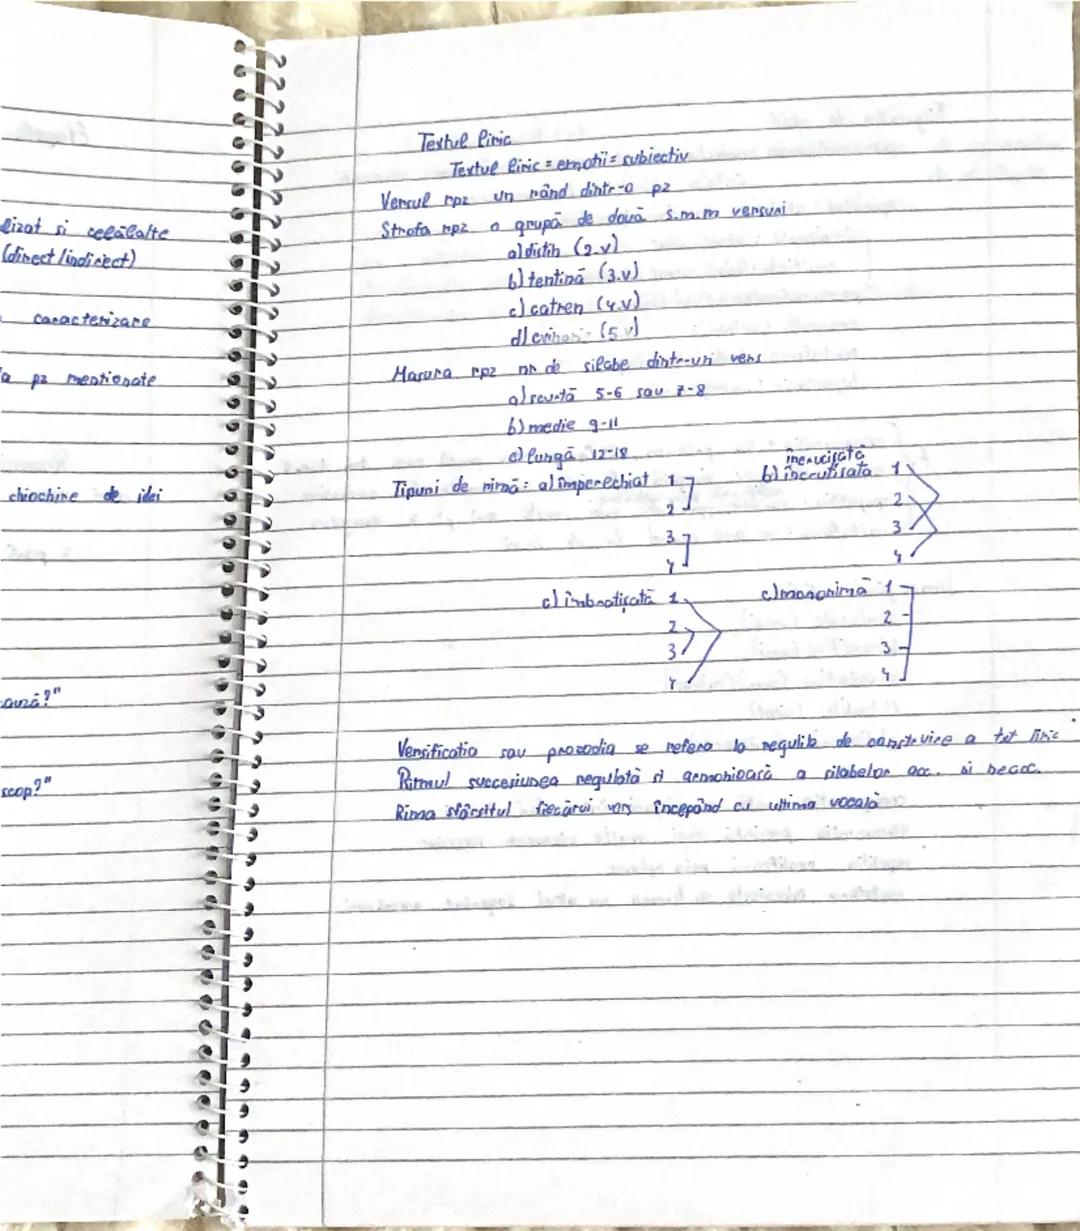 lizat si celălalte
(direct/indirect)
caracterizare
pz mentionate
chiochire de idei
scop?"
Textul liric
Textul liric = emotii = subiectiv
Versul rpz un rând dintr-o pz
Strofa rpz o grupă de două s.m.m versuri
a) distih (2.v)
b) tertină (3.v)
c) catren (4.v)
d) (5.v)
Masura rpz nr de silabe dintr-un vers
a) scurtă 5-6 sau 7-8
b) medie 9-11
c) lungă 12-18
încrucișată
Tipuri de rimă: a) imperechiat 1 b) 1
2 2
3 3
4 4
c) îmbratișată 1 c) monorimă 1
2 2
3 3
4 4
Versificatia sau prozodia se refera la regulile de construire a txt liric
Ritmul succesiunea regulată si armonioasă a silabelor acc. si neacc.
Rima sfârsitul fiecărui vrs începând cu ultima vocală